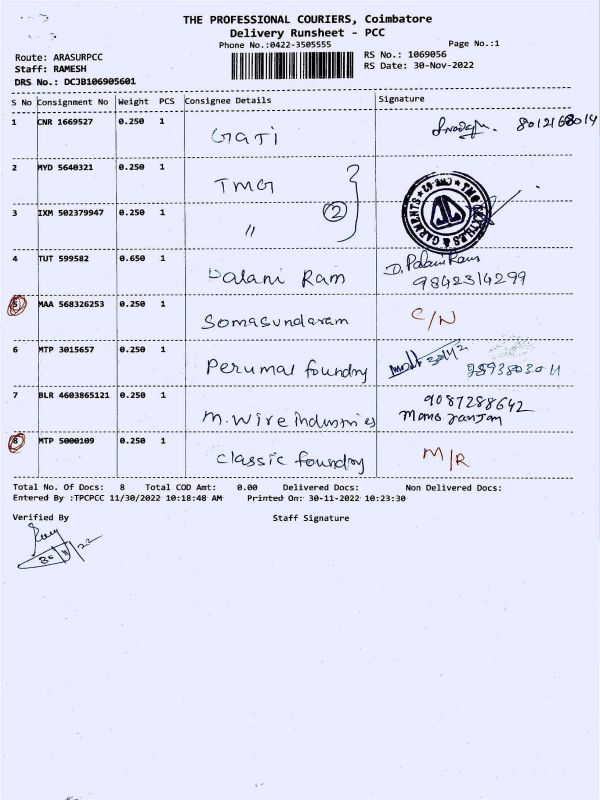 THE PROFESSIONAL COURIERS, Coimbatore
Delivery Runsheet - PCC
Phone No.:0422-3505555
Page No.:1
Route: ARASURPCC
RS No.: 1069056
Staff: RAMESH
RS Date: 30-Nov-2022
DRS No.: DCJB106905601
S No Consignment No Weight PCS Consignee Details Signature
1 CNR 1669527 0.250 1 GATI
2 MYD 5640321 0.250 1 TMG
3 IXM 502379947 0.250 1 〃 2
TMG TEXTILES & GARMENTS
4 TUT 599582 0.650 1 Palani Ram D. Palani Ram
9842314299
5 MAA 568326253 0.250 1 Somasundaram C/N
6 MTP 3015657 0.250 1 Perumal foundry
7 BLR 4603865121 0.250 1 M. Wire industries 9087288642
8 MTP 5000109 0.250 1 classic foundry M/R
Total No. Of Docs: 8 Total COD Amt: 0.00 Delivered Docs: Non Delivered Docs:
Entered By :TPCPCC 11/30/2022 10:18:48 AM Printed On: 30-11-2022 10:23:30
Verified By Staff Signature